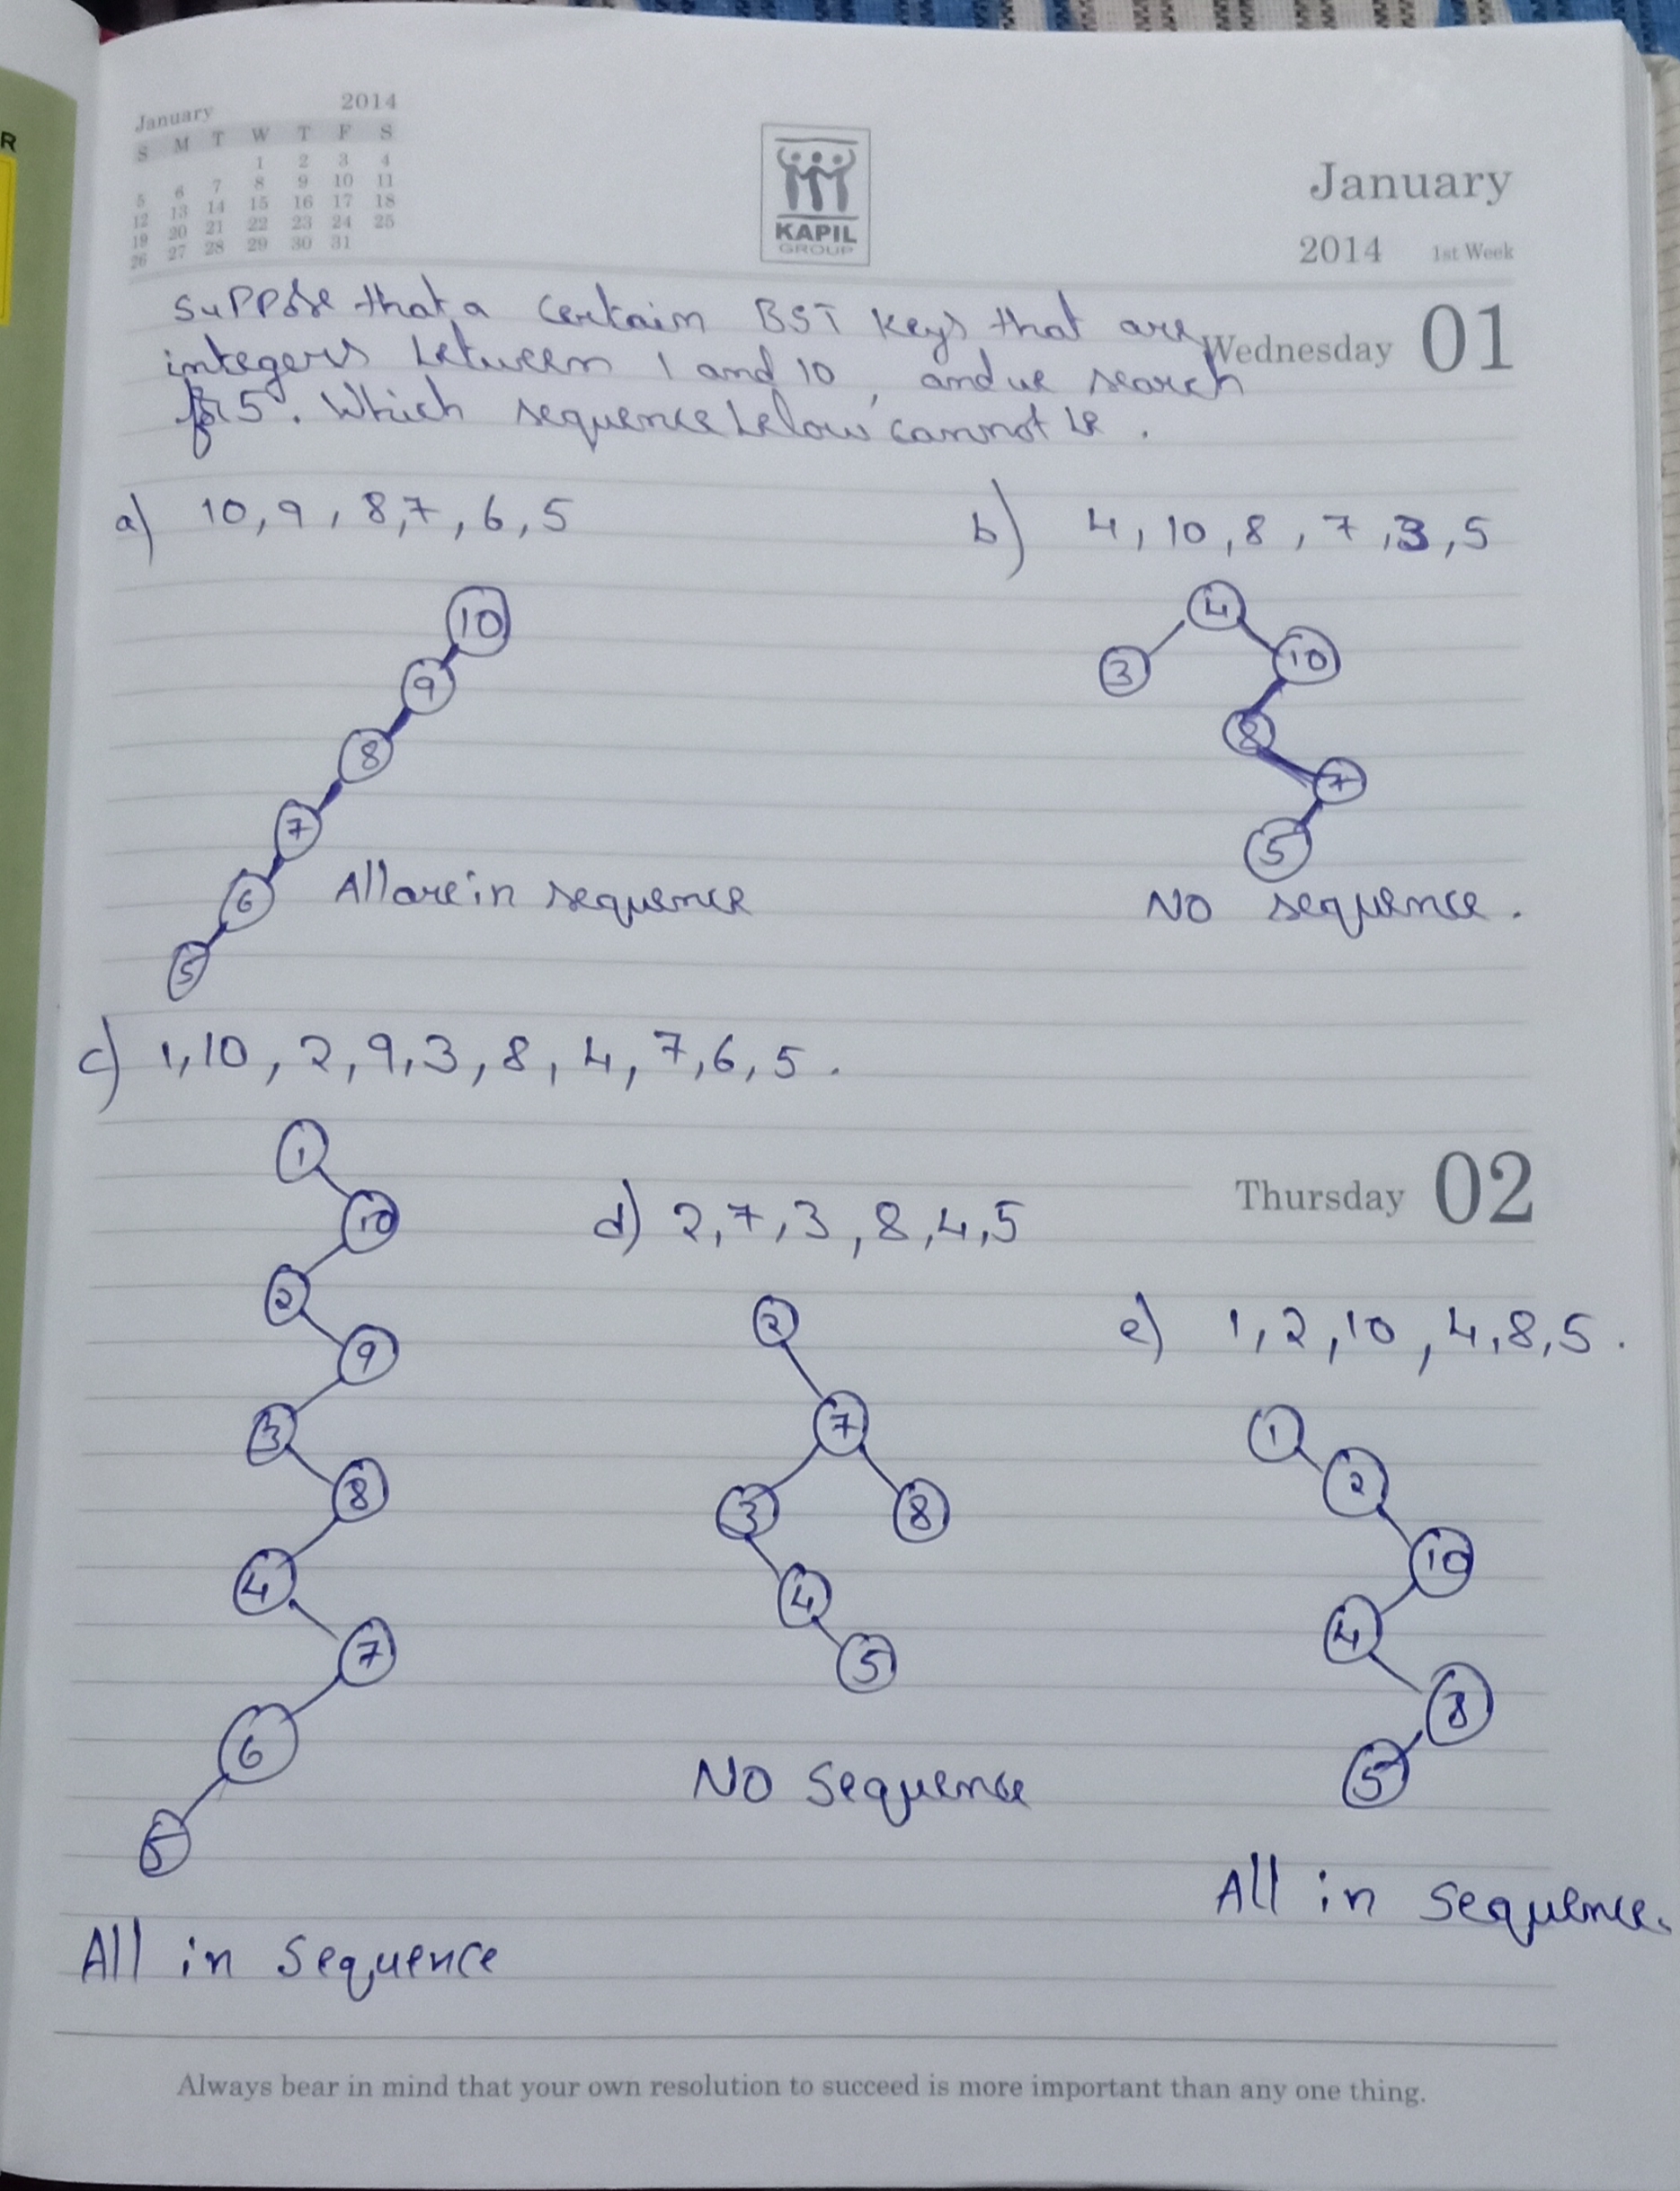 R
January 2014
S M T W T F S
1 2 3 4
5 6 7 8 9 10 11
12 13 14 15 16 17 18
19 20 21 22 23 24 25
26 27 28 29 30 31
KAPIL
GROUP
January
2014 1st Week
Wednesday 01
Suppose that a certain BST keys that are
integers between 1 and 10, and we search
for 5. Which sequence below cannot be.
a) 10, 9, 8, 7, 6, 5
b) 4, 10, 8, 7, 3, 5
10
9
8
7
6
5
All are in sequence
4
3 10
8
7
5
NO sequence.
c) 1, 10, 2, 9, 3, 8, 4, 7, 6, 5.
Thursday 02
1
10
2
9
3
8
4
7
6
5
All in Sequence
d) 2, 7, 3, 8, 4, 5
2
7
3 8
4
5
NO Sequence
e) 1, 2, 10, 4, 8, 5.
1
2
10
4
8
5
All in Sequence.
Always bear in mind that your own resolution to succeed is more important than any one thing.